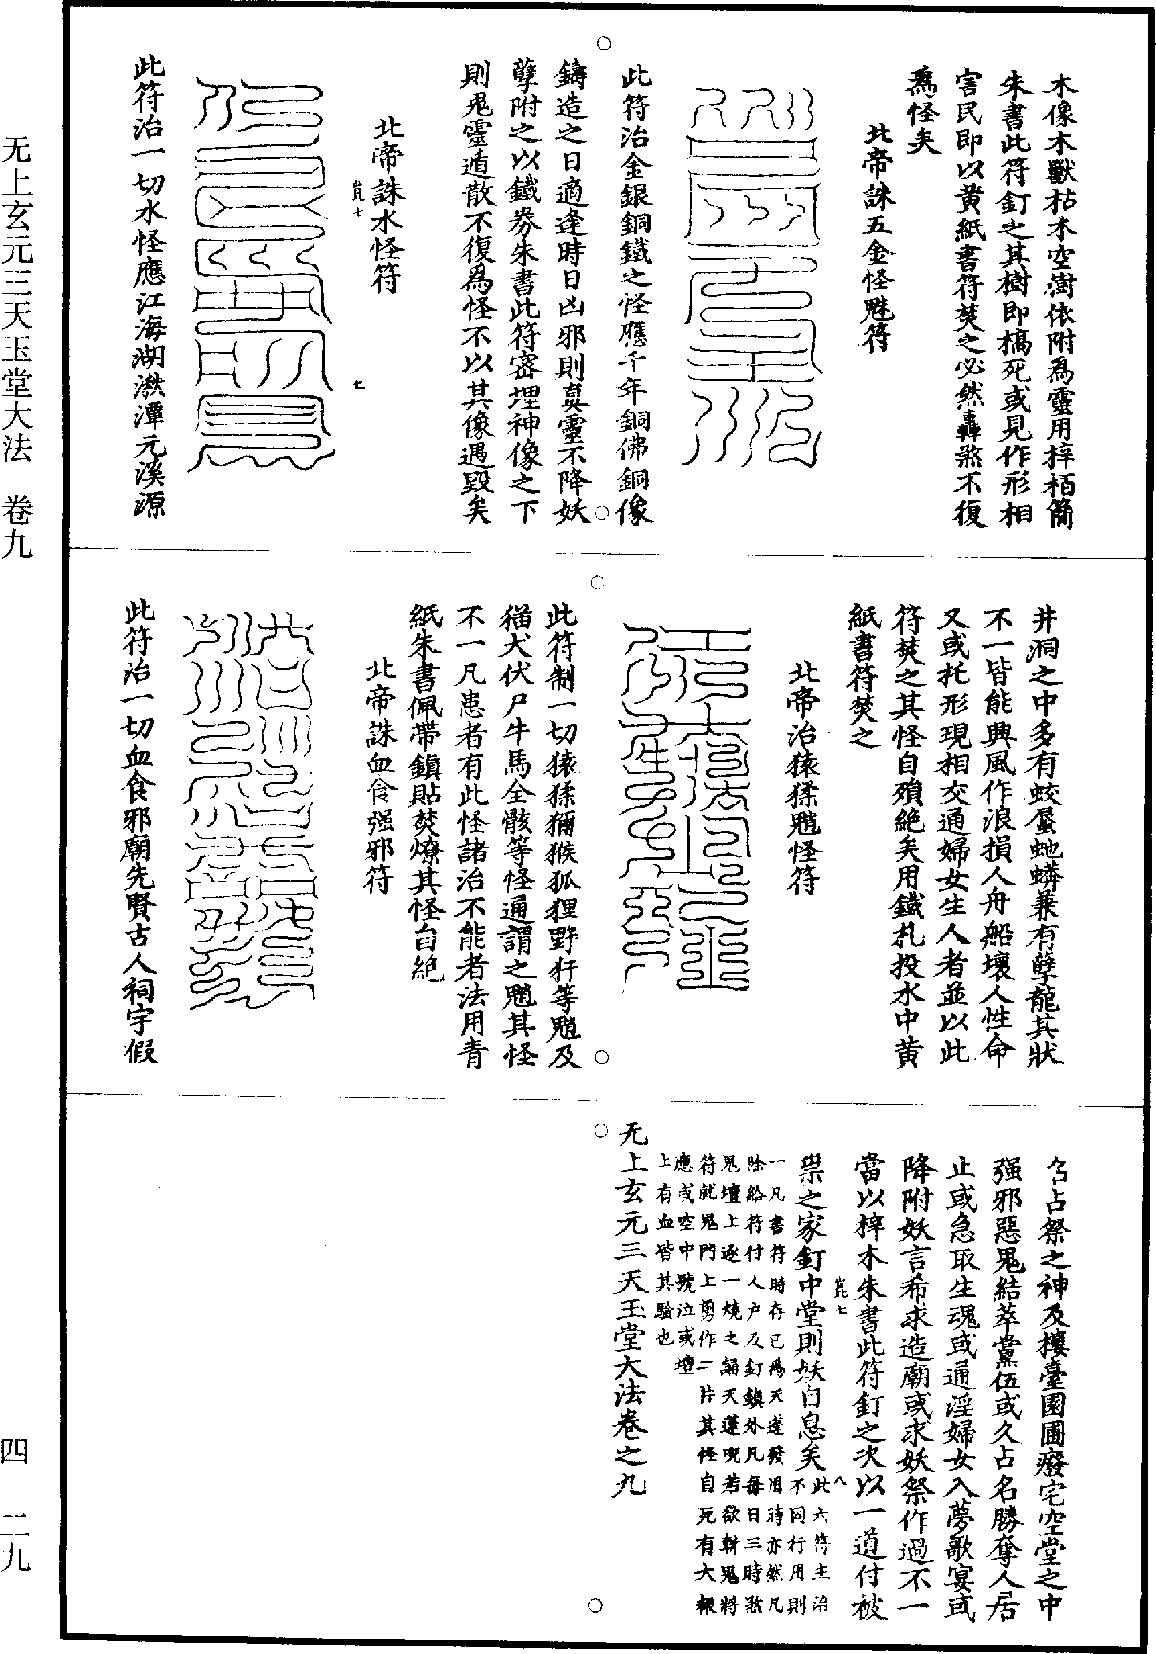 木像木獸枯木空樹依附爲靈用梓栢簡
朱書此符釘之其樹即槁死或見作形相
害民即以黄紙書符焚之必然轟煞不復
爲怪矣
北帝誅五金怪魋符
此符治金銀銅鐵之怪應千年銅佛銅像
鑄造之日適逢時日凶邪則真靈不降妖
孽附之以鐵券朱書此符密埋神像之下
則鬼靈遁散不復爲怪不以其像遇毀矣
北帝誅水怪符
此符治一切水怪應江海湖潠潭元溪源
井洞之中多有蛟蜃虵蟒兼有孽龍其狀
不一皆能興風作浪損人舟船壞人性命
又或托形現相交通婦女生人者並以此
符焚之其怪自殞絶矣用鐵札投水中黄
紙書符焚之
北帝治猿猱魈怪符
此符制一切猿猱獼猴狐狸野犴等魈及
猫犬伏尸牛馬全骸等怪通謂之魈其怪
不一凡患者有此怪諸治不能者法用青
紙朱書佩帶鎮貼焚燎其怪自絶
北帝誅血食强邪符
此符治一切血食邪廟先賢古人祠宇假
名占祭之神及樓臺園圃廢宅空堂之中
强邪惡鬼結萃黨伍或久占名勝奪人居
止或急取生魂或通淫婦女入夢歌宴或
降附妖言希求造廟或求妖祭作過不一
當以梓木朱書此符釘之次以一道付被
祟之家釘中堂則妖自息矣此六符主治
不同行用則
一凡書符時存已爲天蓬發用時亦然凡
除給符付人户及釘鎮外凡每日三時於
鬼壇上逐一燒之誦天蓬呪若欲斬鬼將
符就鬼門上剪作二片其怪自死有大報
應或空中號泣或壇
上有血皆其驗也
无上玄元三天玉堂大法卷之九
无上玄元三天玉堂大法　卷九
四　二九